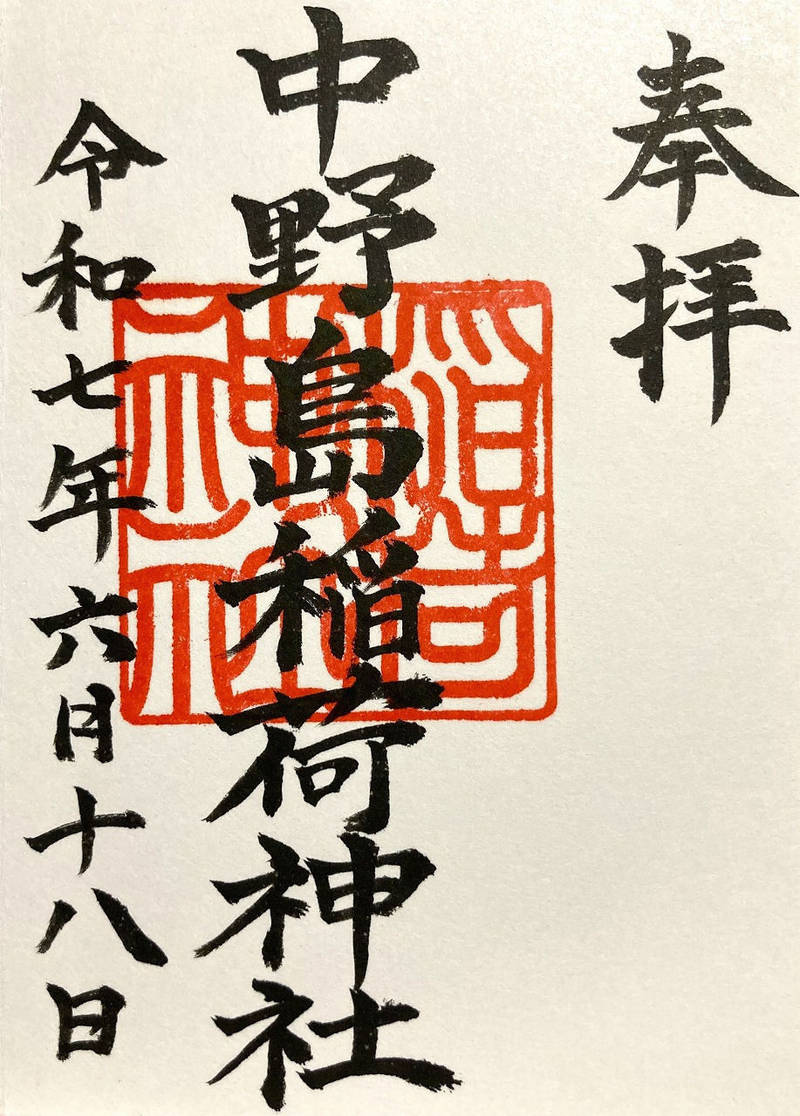 奉拝
中野島稲荷神社
令和七年六月十八日